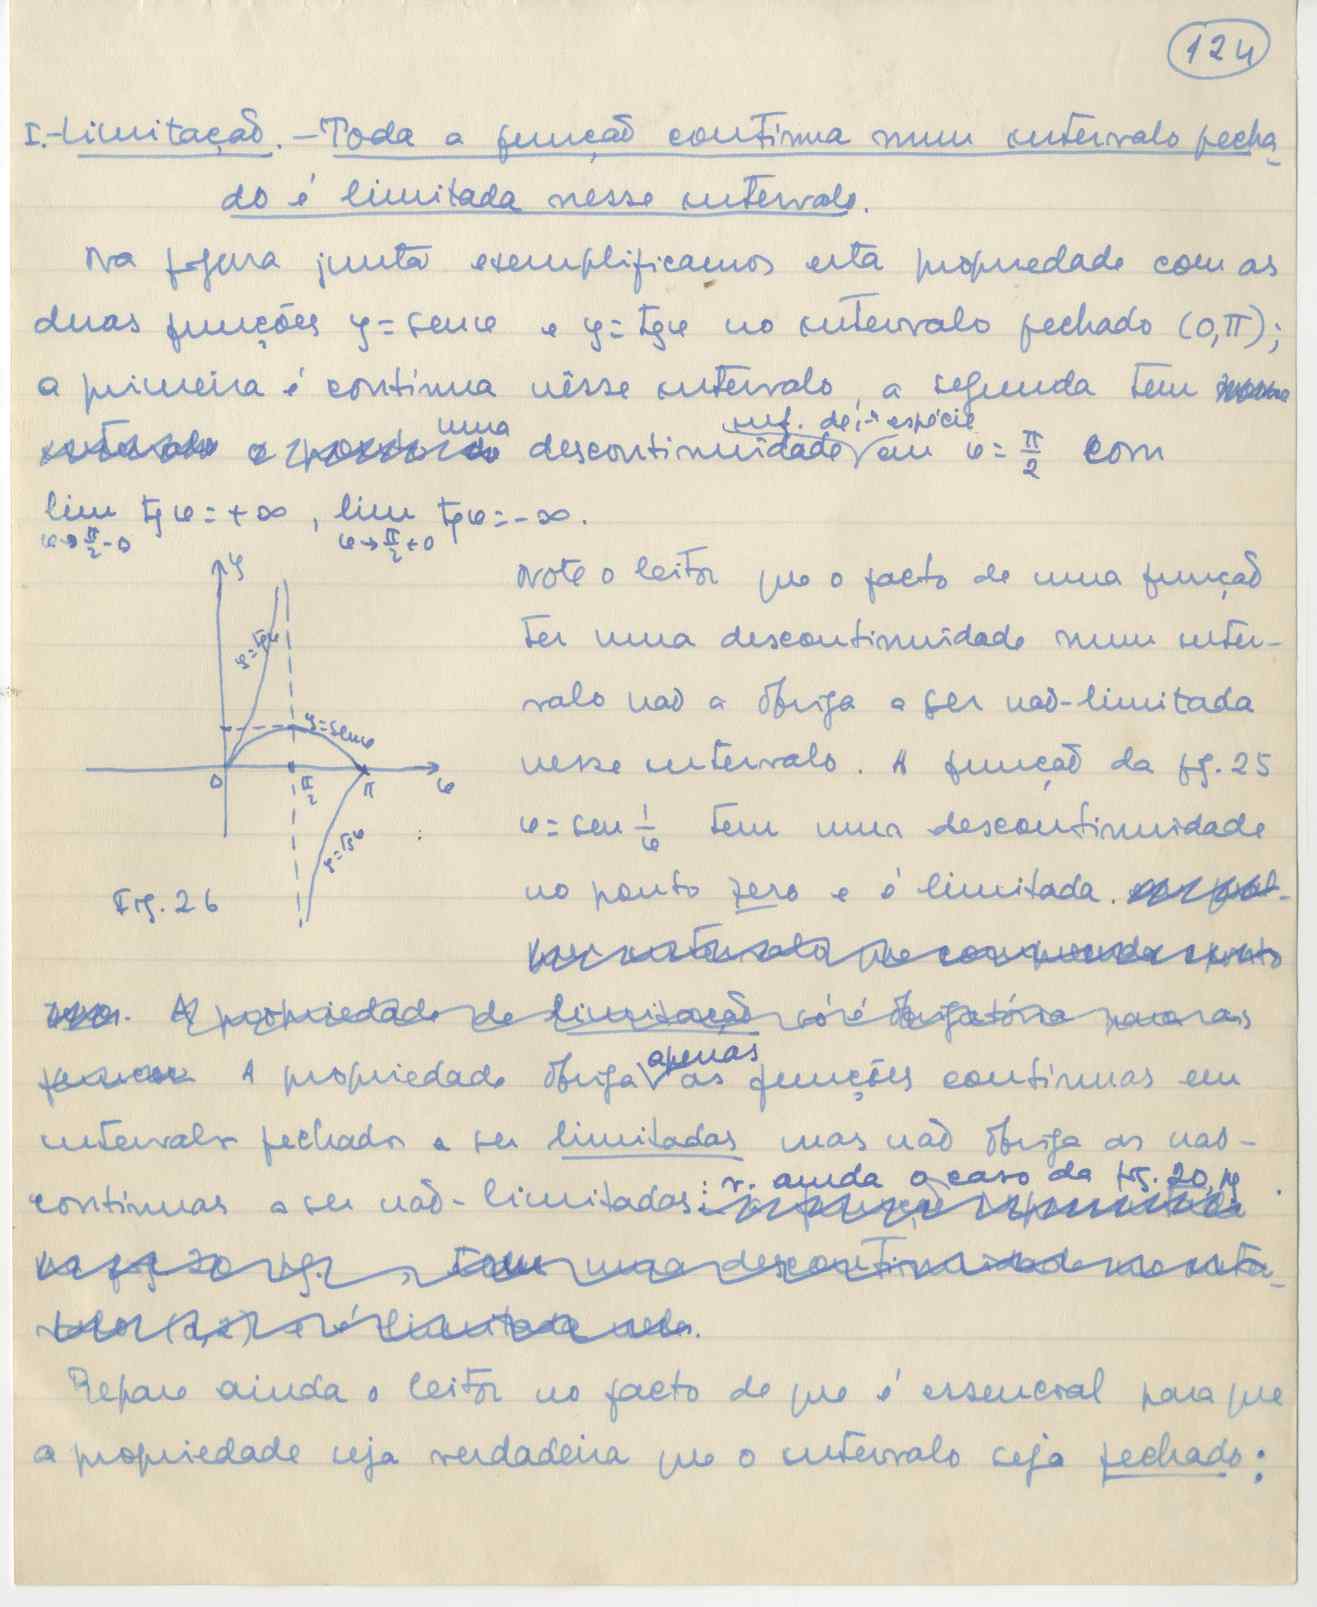 124
I.- Limitação. - Toda a função contínua num intervalo fecha-
do é limitada nesse intervalo.
Na figura junta exemplificamos esta propriedade com as
duas funções y = sen x e y = tg x no intervalo fechado (0, π);
a primeira é contínua nêsse intervalo, a segunda tem
uma descontinuidade inf. de 1ª espécie em x = π/2 com
lim tg x = + ∞ , lim tg x = - ∞.
x→π/2-0 x→π/2+0
y
y = tg x
y = sen x
0 π/2 π x
y = tg x
Fig. 26
Note o leitor que o facto de uma função
ter uma descontinuidade num inter-
valo não a obriga a ser não-limitada
nesse intervalo. A função da fig. 25
y = sen 1/x tem uma descontinuidade
no ponto zero e é limitada. em qual-
quer intervalo que compreenda o ponto
zero. A propriedade de limitação só é obrigatória para as
funções A propriedade obriga apenas as funções contínuas em
intervalo fechado a ser limitadas mas não obriga as não-
contínuas a ser não-limitadas: v. ainda o caso da fig. 20, pg .
na fig. 20 pg. , tem uma descontinuidade no inter-
valo é limitada nele.
Repare ainda o leitor no facto de que é essencial para que
a propriedade seja verdadeira que o intervalo seja fechado: